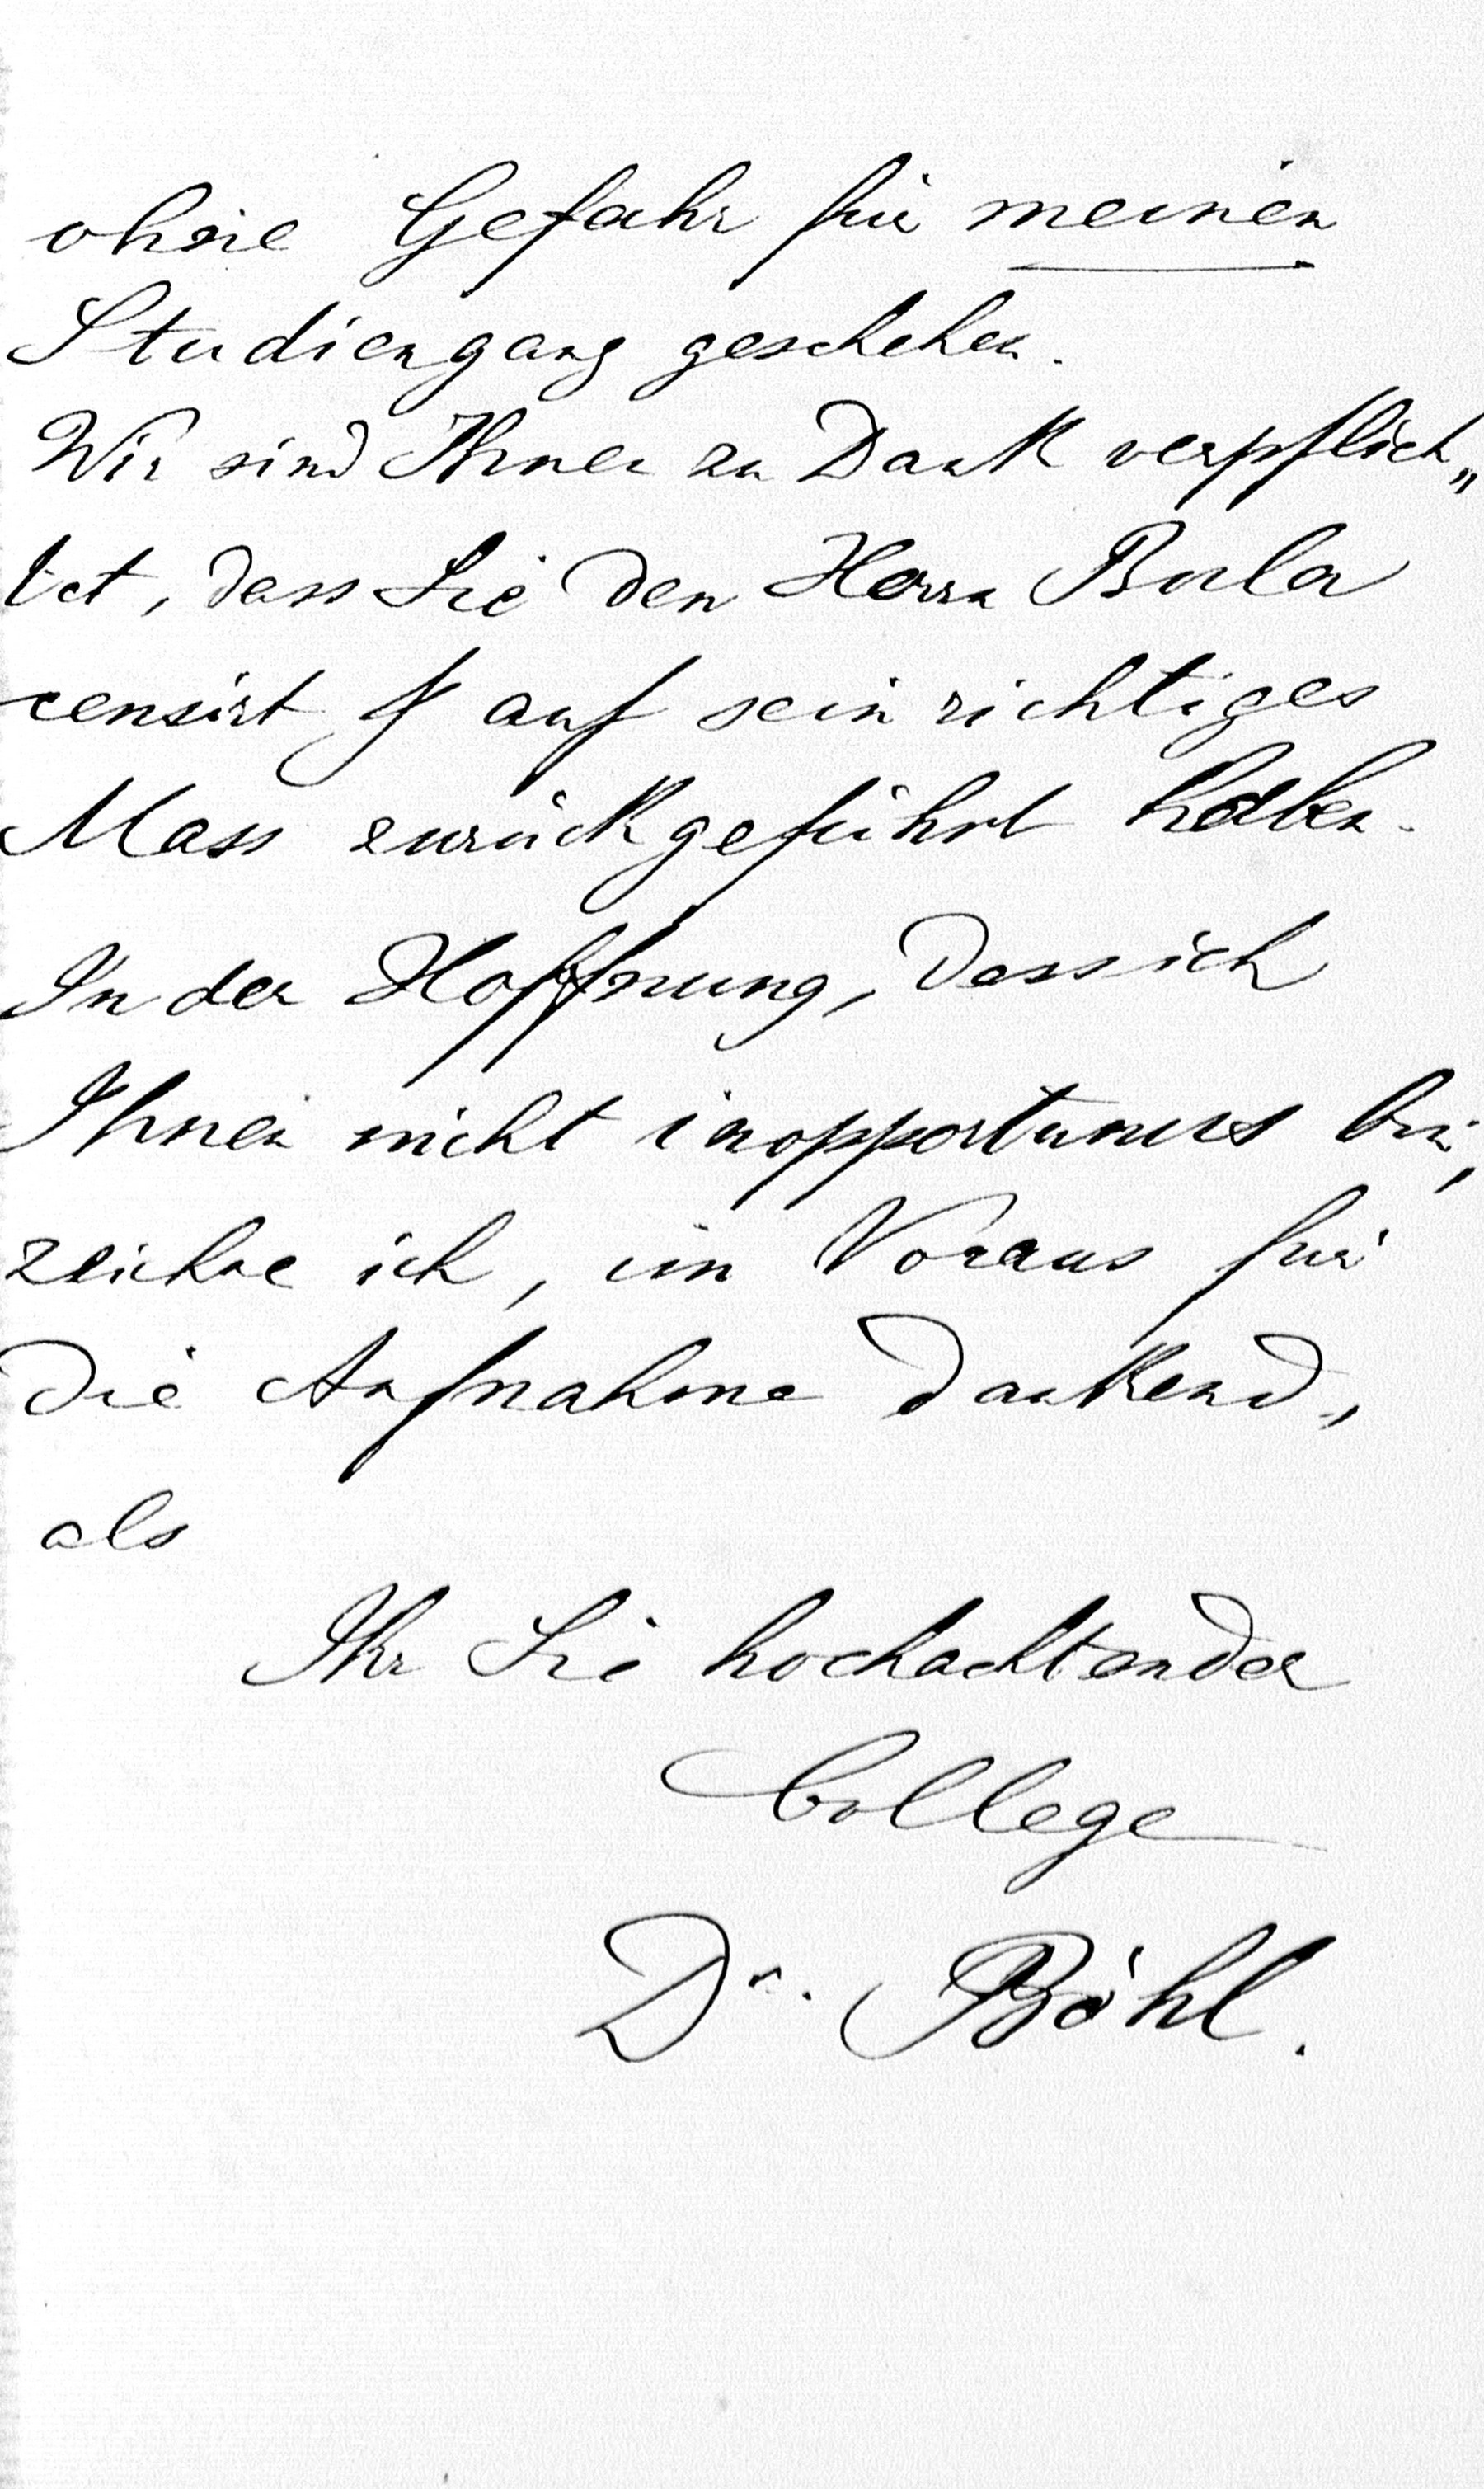 ohne Gefahr für meinen
Studiengang geschehen.
Wir sind Ihnen zu Dank verpflich„
tet, dass Sie den Herrn
censirt & auf sein richtiges
Mass zurückgeführt haben.
In der Hoffnung, dass ich
Ihnen nicht inopportunus bin,
zeichne ich, im Voraus für
die Aufnahme dankend,
als
Ihr Sie hochachtender
College
Dr. Böhl.